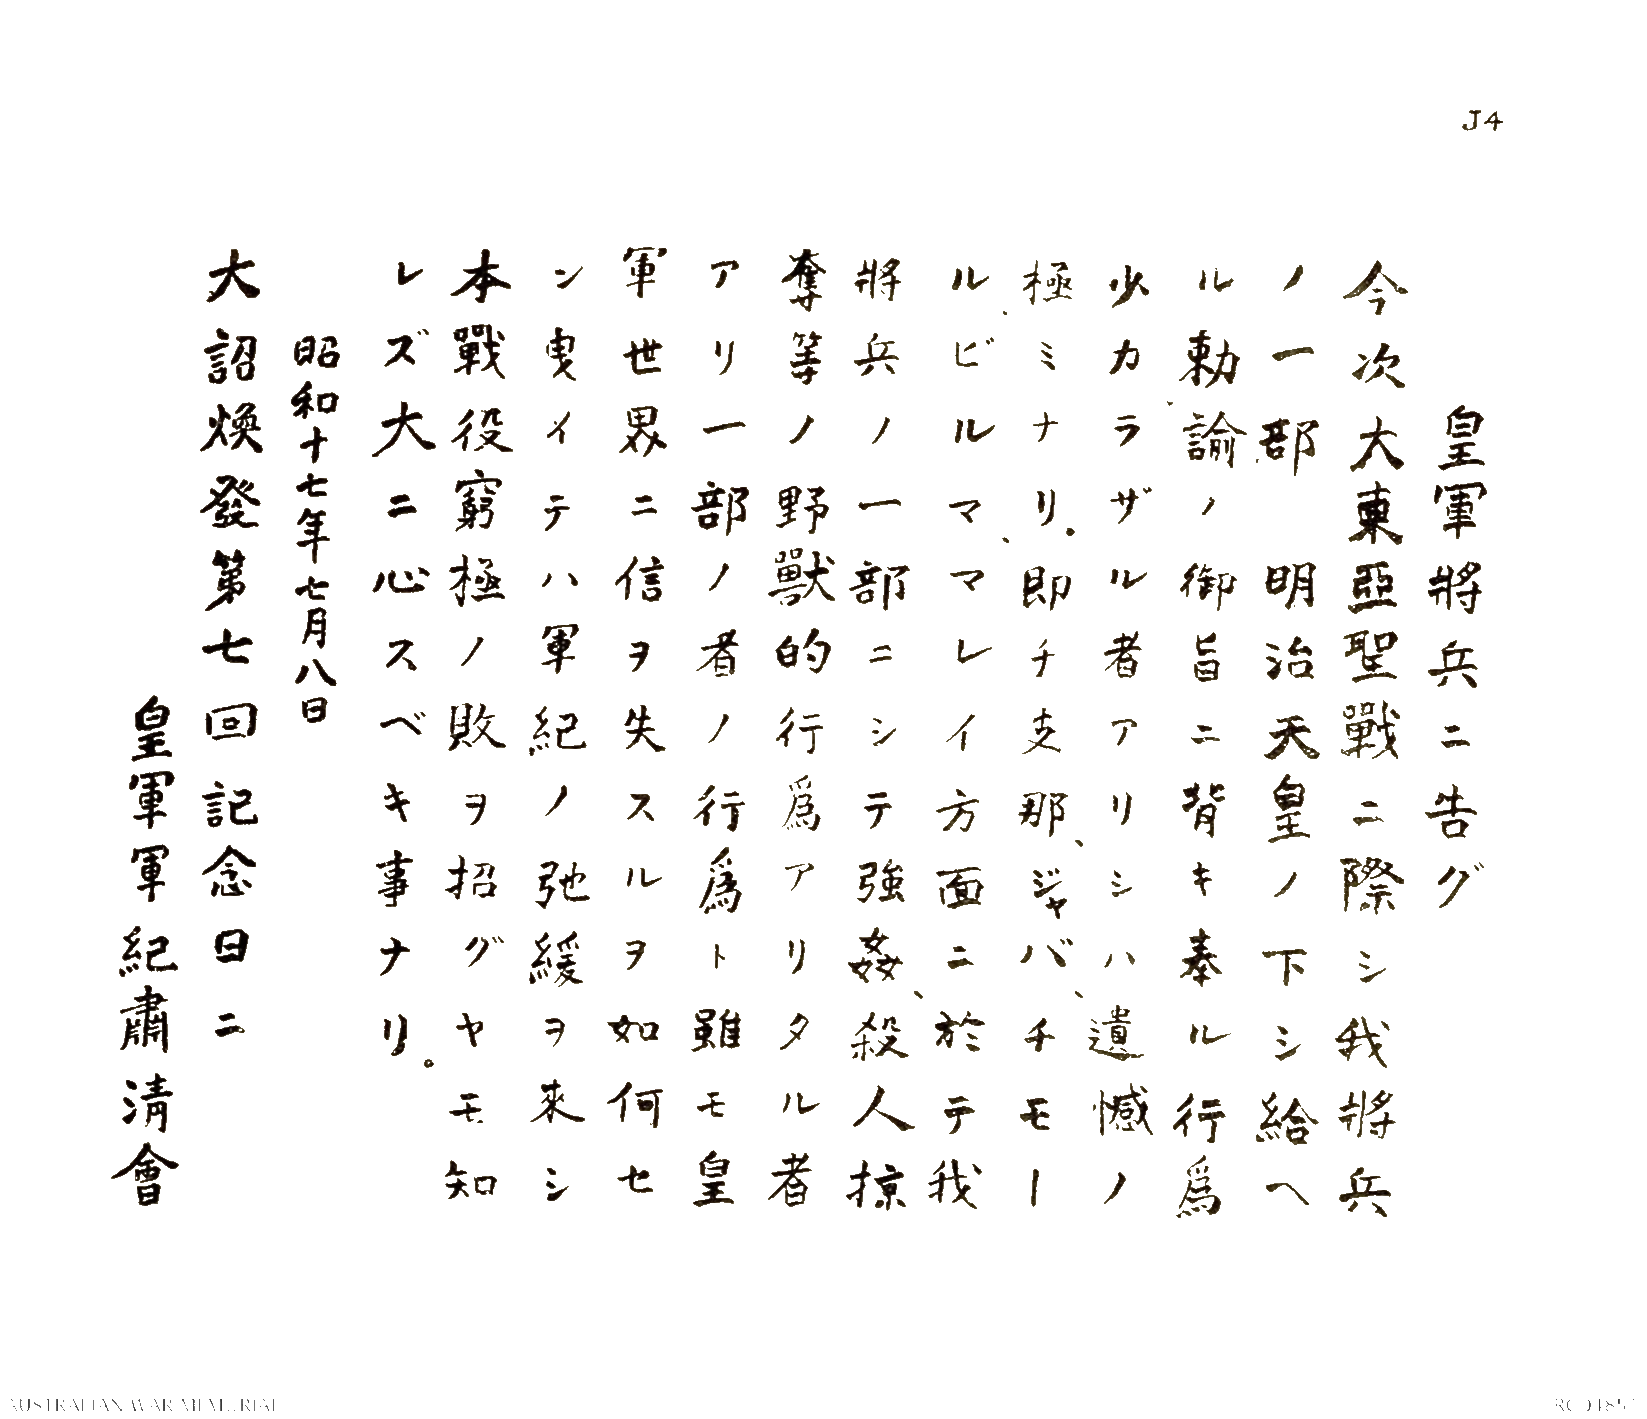 J4
皇軍將兵ニ告グ
今次大東亞聖戰ニ際シ我將兵
ノ一部 明治天皇ノ下シ給ヘ
ル勅諭ノ御旨ニ背キ奉ル行爲
少カラザル者アリシハ、遺憾ノ
極ミナリ。即チ支那、ジャバ、チモー
ル、ビルマ、マレイ方面ニ於テ我
將兵ノ一部ニシテ強姦、殺人掠
奪等ノ野獸的行爲アリタル者
アリ一部ノ者ノ行爲ト雖モ皇
軍世界ニ信ヲ失スルヲ如何セ
ン曳イテハ軍紀ノ弛緩ヲ來シ
本戰役窮極ノ敗ヲ招グヤモ知
レズ大ニ心スベキ事ナリ。
昭和十七年七月八日
大詔煥發第七回記念日ニ
皇軍軍紀肅清會
AUSTRALIAN WAR MEMORIAL